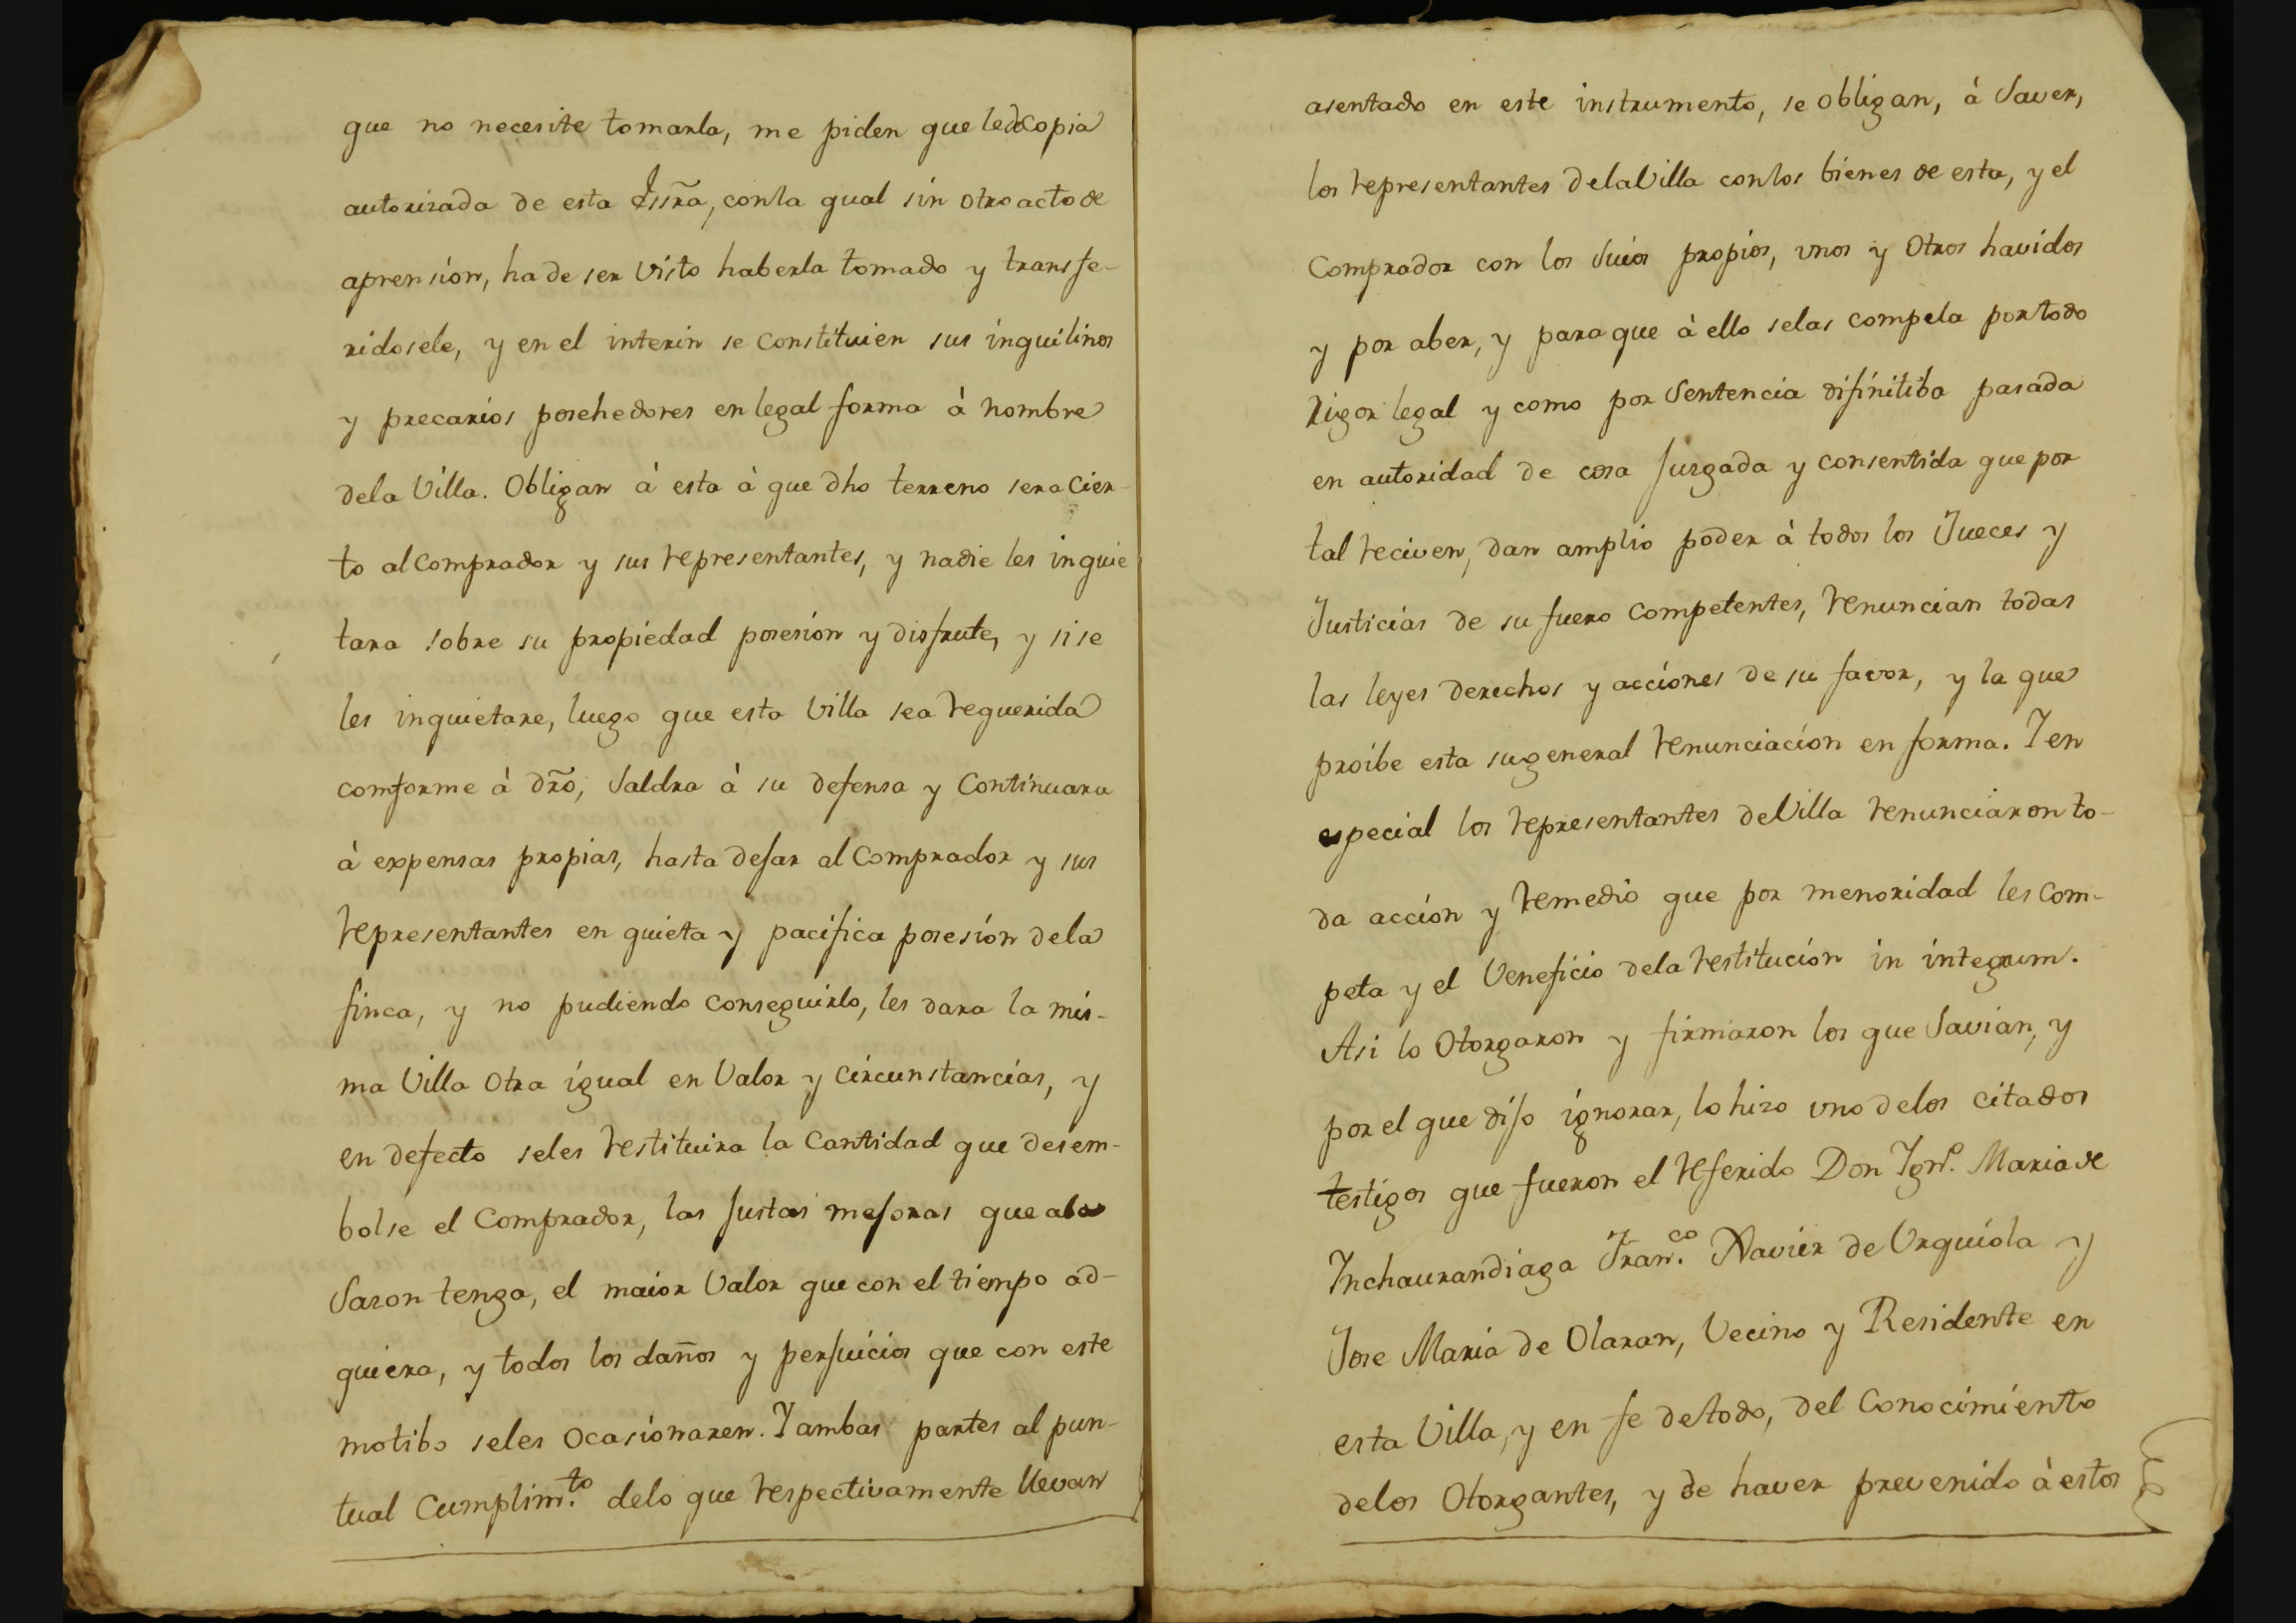 que no necesite tomarla, me piden que le dé Copia
autorizada de esta Essra, conla qual sin otro acto de
aprension, ha de ser visto haberla tomado y transfe-
ridosele, y en el interin se constituien sus inquilinos
y precarios posehedores en legal forma à nombre
dela Villa. Obligan à esta à que dho terreno sera Cier-
to al Comprador y sus representantes, y nadie les inquie
tara sobre su propiedad posesion y disfrute, y si se
les inquietare, luego que esta Villa sea requerida
comforme à dr̃o, Saldra à su defensa y Continuara
à expensas propias, hasta dejar al Comprador y sus
representantes en quieta y pacifica posesión dela
finca, y no pudiendo conseguirlo, les dara la mis-
ma Villa Otra igual en Valor y circunstancias, y
en defecto seles restituira la Cantidad que desem-
bolse el Comprador, las justas mejoras que ala
Sazon tenga, el maior Valor que con el tiempo ad-
quiera, y todos los daños y perjuicios que con este
motibo seles Ocasionaren. Y ambas partes al pun-
tual Cumplim.to delo que respectivamente llevan
asentado en este instrumento, se obligan, à Saver,
los representantes dela Villa con los bienes de esta, y el
Comprador con los Suios propios, unos y Otros havidos
y por aber, y para que à ello selas compela por todo
rigor legal y como por Sentencia difinitiba pasada
en autoridad de cosa Juzgada y consentida que por
tal reciven, dan amplio poder à todos los Jueces y
Justicias de su fuero Competentes, renuncian todas
las leyes derechos y acciones de su favor, y la que
proibe esta su general renunciación en forma. Y en
especial los representantes de Villa renunciaron to-
da acción y remedio que por menoridad les com-
peta y el Veneficio dela restitución in integrum.
Asi lo Otorgaron y firmaron los que Savian, y
por el que dijo ignorar, lo hizo uno delos citados
testigos que fueron el referido Don Ign.o Maria de
Inchaurandiaga Fran.co Xavier de Urquiola y
Jose Maria de Olaran, Vecino y Residente en
esta Villa, y en fe de todo, del Conocimiento
delos Otorgantes, y de haver prevenido à estos